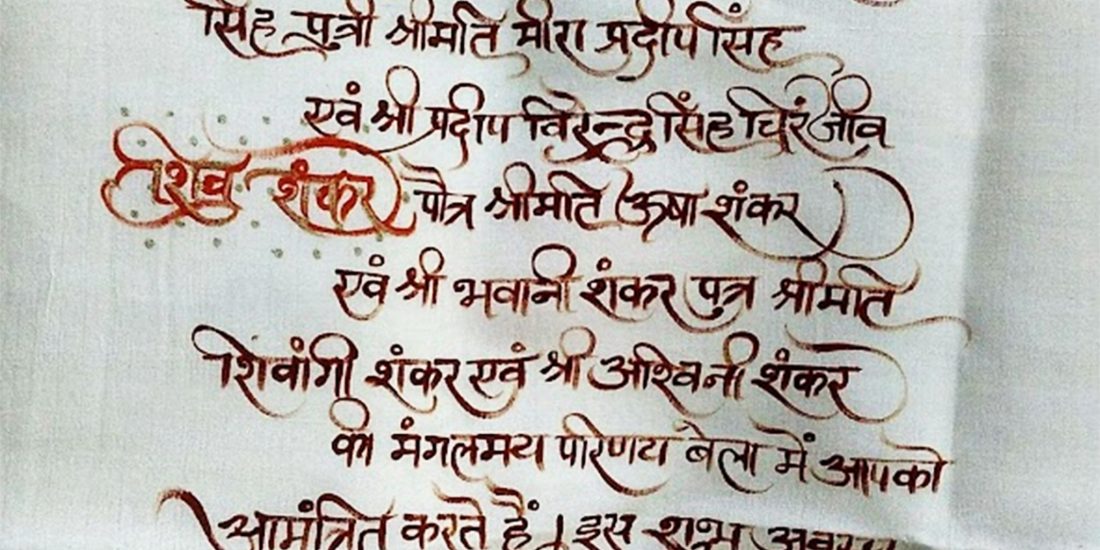 सिंह पुत्री श्रीमति मीरा प्रदीप सिंह
एवं श्री प्रदीप विरेन्द्र सिंह चिरंजीव
शिव शंकर पौत्र श्रीमति ऊषा शंकर
एवं श्री भवानी शंकर पुत्र श्रीमति
शिवांगी शंकर एवं श्री अश्विनी शंकर
की मंगलमय परिणय बेला में आपको
आमंत्रित करते हैं। इस शुभ